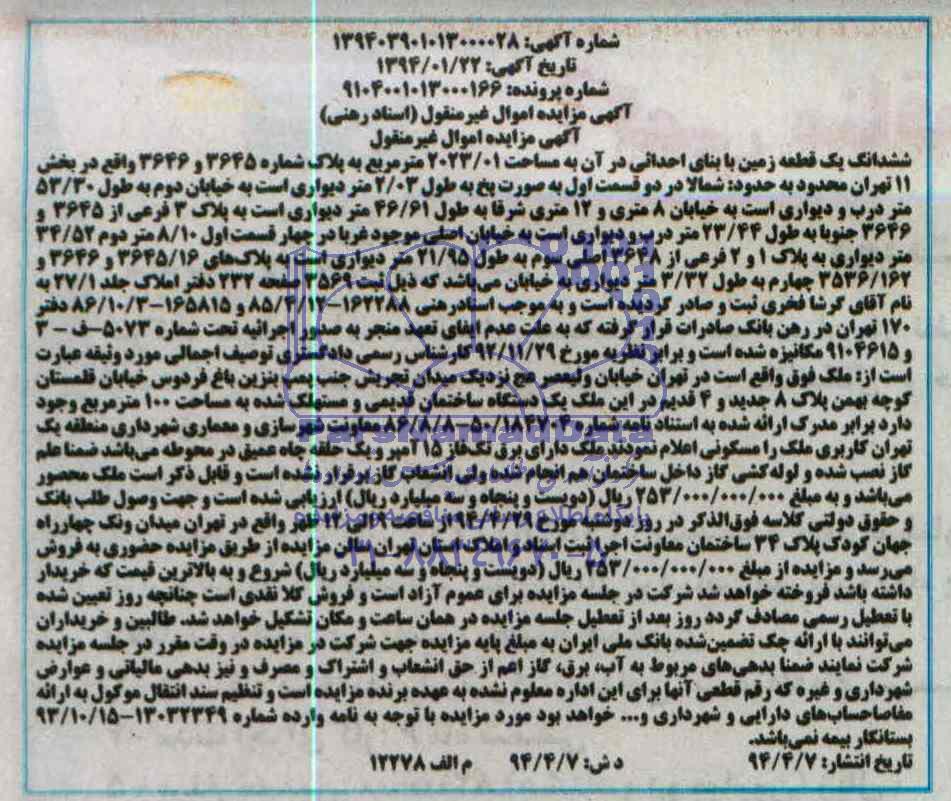 شماره آگهی: ۱۳۹۴۰۳۹۰۱۰۱۳۰۰۰۰۲۸
تاریخ آگهی: ۱۳۹۴/۰۱/۲۲
شماره پرونده: ۹۱۰۴۰۰۱۰۱۳۰۰۰۱۶۶
آگهی مزایده اموال غیرمنقول (اسناد رهنی)
آگهی مزایده اموال غیرمنقول
ششدانگ یک قطعه زمین با بنای احداثی در آن به مساحت ۲۰۲۳/۰۱ مترمربع به پلاک شماره ۳۶۴۵ و ۳۶۴۶ واقع در بخش
۱۱ تهران محدود به حدود: شمالا در دو قسمت اول به صورت پخ به طول ۲/۰۳ متر دیواری است به خیابان دوم به طول ۵۳/۳۰
متر درب و دیواری است به خیابان ۸ متری و ۱۲ متری شرقا به طول ۴۶/۶۱ متر دیواری است به پلاک ۳ فرعی از ۳۶۴۵ و
۳۶۴۶ جنوبا به طول ۲۳/۴۴ متر درب و دیواری است به خیابان اصلی موجود غربا در چهار قسمت اول ۸/۱۰ متر دوم ۳۴/۵۲
متر دیواری به پلاک ۱ و ۲ فرعی از ۳۶۴۸ اصلی سوم به طول ۲۱/۹۵ متر دیواری است به پلاک‌های ۳۶۴۵/۱۶ و ۳۶۴۶ و
۳۵۳۶/۱۶۲ چهارم به طول ۳/۳۲ متر دیواری به خیابان می‌باشد که ذیل ثبت ۳۵۶۹ صفحه ۲۳۲ دفتر املاک جلد ۲۷/۱ به
نام آقای گرشا فخری ثبت و صادر گردیده است و به موجب اسناد رهنی ۱۶۲۲۸۰-۸۵/۴/۱۲ و ۱۶۵۸۱۵-۸۶/۱۰/۳ دفتر
۱۷۰ تهران در رهن بانک صادرات قرار گرفته که به علت عدم ایفای تعهد منجر به صدور اجرائیه تحت شماره ۵۰۷۳-ف-۳
و ۹۱۰۴۶۱۵ مکانیزه شده است و برابر نظریه مورخ ۹۲/۱۱/۲۹ کارشناس رسمی دادگستری توصیف اجمالی مورد وثیقه عبارت
است از: ملک فوق واقع است در تهران خیابان ولیعصر عج نزدیک میدان تجریش جنب پمپ بنزین باغ فردوس خیابان قلمستان
کوچه بهمن پلاک ۸ جدید و ۴ قدیم در این ملک یک دستگاه ساختمان قدیمی و مستهلک شده به مساحت ۱۰۰ مترمربع وجود
دارد برابر مدرک ارائه شده به استناد نامه شماره ۵۰/۱۸۲۷۰۴-۸۶/۸/۸ معاونت شهرسازی و معماری شهرداری منطقه یک
تهران کاربری ملک را مسکونی اعلام نموده است دارای برق تک‌فاز ۱۵ آمپر و یک حلقه چاه عمیق در محوطه می‌باشد ضمنا علم
گاز نصب شده و لوله‌کشی گاز داخل ساختمان هم انجام شده ولی انشعاب گاز برقرار نشده است و قابل ذکر است ملک محصور
می‌باشد و به مبلغ ۲۵۳/۰۰۰/۰۰۰/۰۰۰ ریال (دویست و پنجاه و سه میلیارد ریال) ارزیابی شده است و جهت وصول طلب بانک
و حقوق دولتی کلاسه فوق‌الذکر در روز دوشنبه مورخ ۱۳۹۴/۴/۲۹ ساعت ۹ الی ۱۲ ظهر واقع در تهران میدان ونک چهارراه
جهان کودک پلاک ۳۴ ساختمان معاونت اجرا ثبت اسناد و املاک استان تهران سالن مزایده از طریق مزایده حضوری به فروش
می‌رسد و مزایده از مبلغ ۲۵۳/۰۰۰/۰۰۰/۰۰۰ ریال (دویست و پنجاه و سه میلیارد ریال) شروع و به بالاترین قیمت که خریدار
داشته باشد فروخته خواهد شد شرکت در جلسه مزایده برای عموم آزاد است و فروش کلا نقدی است چنانچه روز تعیین شده
با تعطیل رسمی مصادف گردد روز بعد از تعطیل جلسه مزایده در همان ساعت و مکان تشکیل خواهد شد. طالبین و خریداران
می‌توانند با ارائه چک تضمین‌شده بانک ملی ایران به مبلغ پایه مزایده جهت شرکت در مزایده در وقت مقرر در جلسه مزایده
شرکت نمایند ضمنا بدهی‌های مربوط به آب، برق، گاز اعم از حق انشعاب و اشتراک و مصرف و نیز بدهی مالیاتی و عوارض
شهرداری و غیره که رقم قطعی آنها برای این اداره معلوم نشده به عهده برنده مزایده است و تنظیم سند انتقال موکول به ارائه
مفاصاحساب‌های دارایی و شهرداری و... خواهد بود مورد مزایده با توجه به نامه وارده شماره ۱۳۰۳۲۳۴۹-۹۳/۱۰/۱۵
بستانکار بیمه نمی‌باشد.
تاریخ انتشار: ۹۴/۴/۷ د ش: ۹۴/۴/۷ م الف ۱۲۲۷۸
ParsNamadData